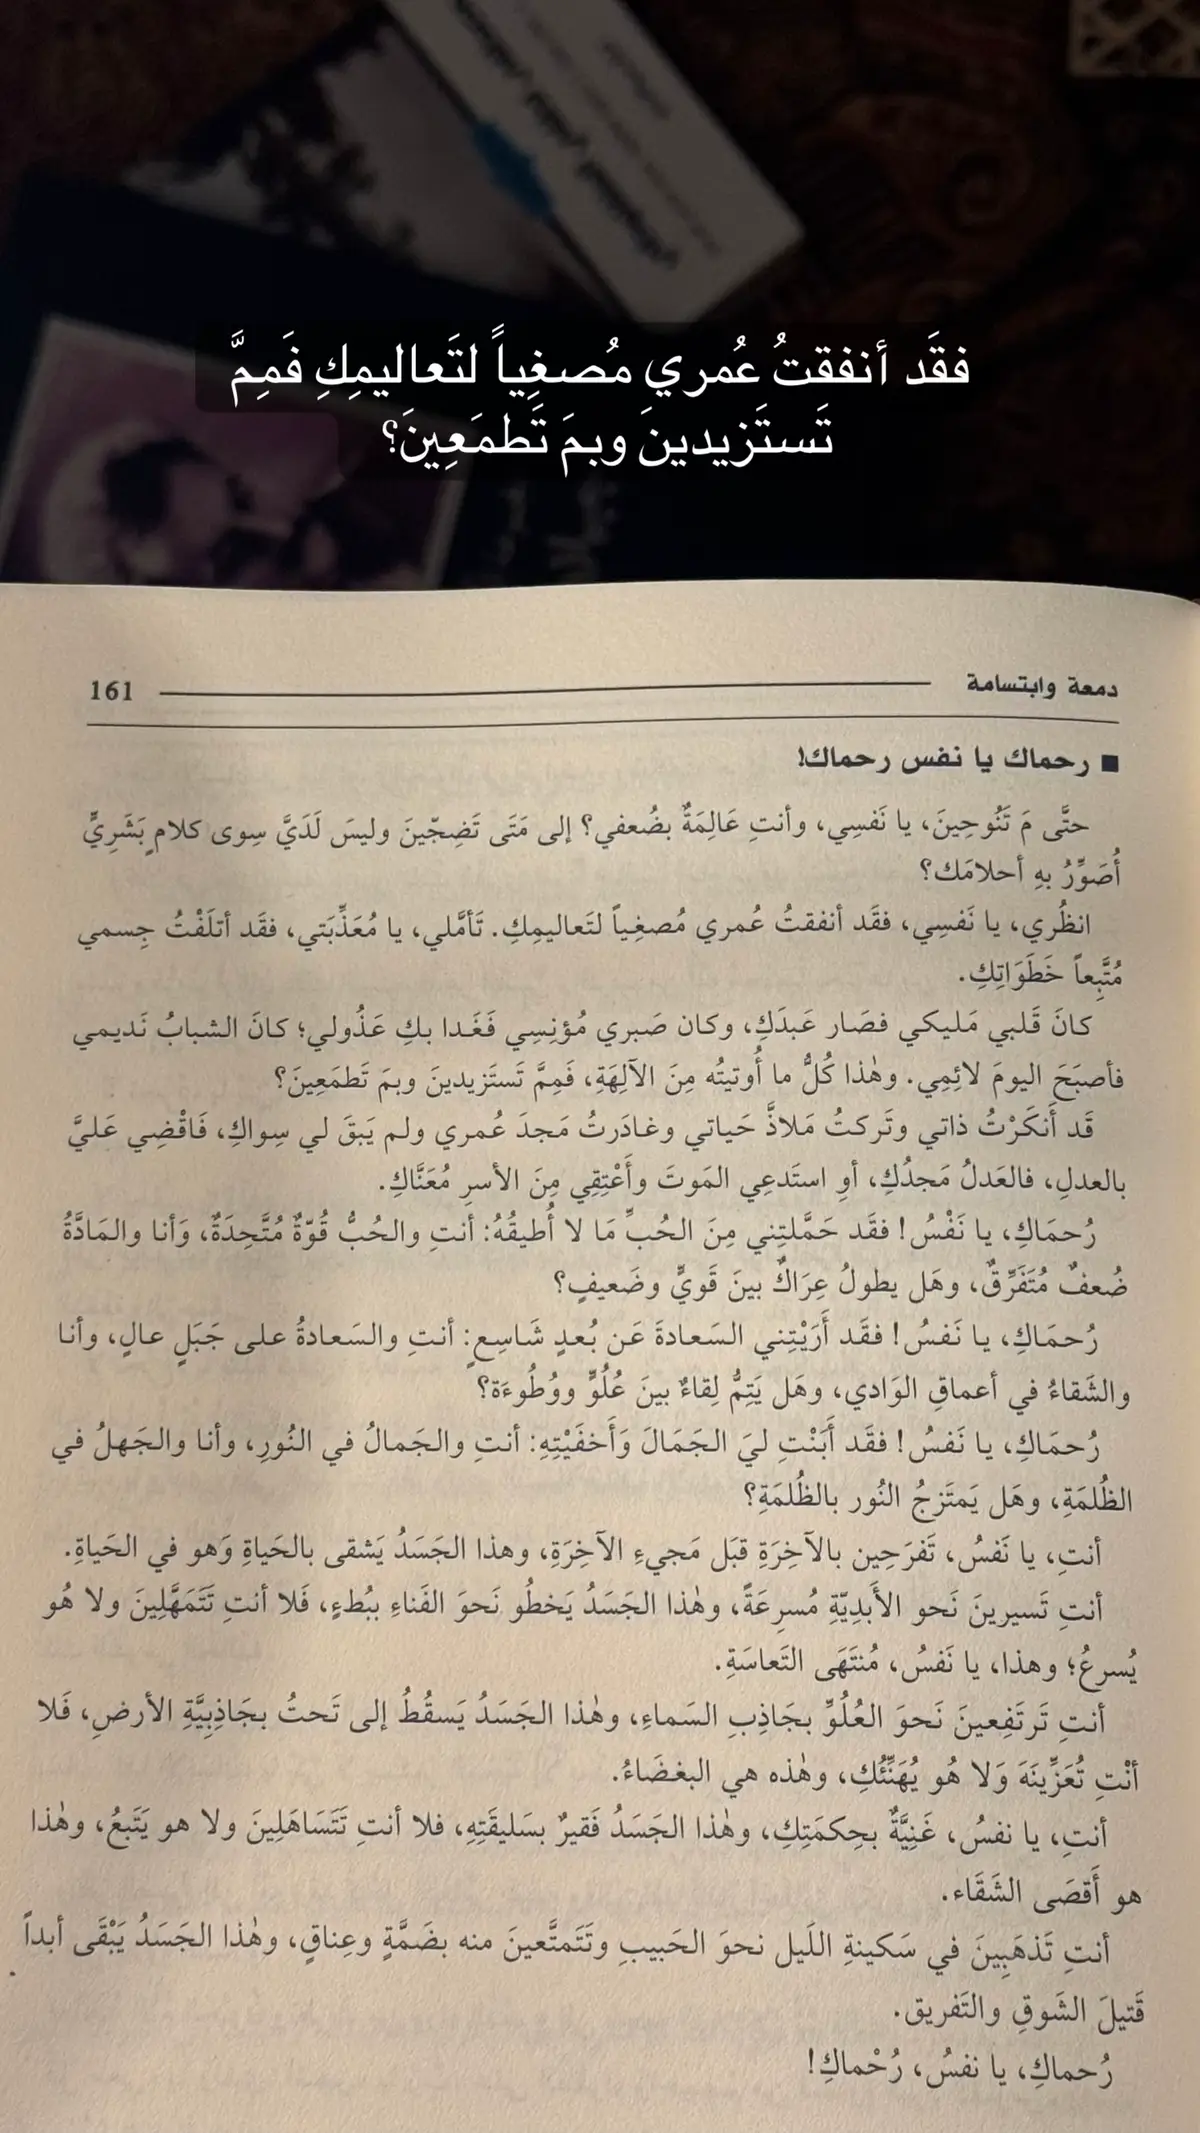 فقَد أنفقتُ عُمري مُصغِياً لتَعاليمِكِ فَمِمَّ
تَستَزيدينَ وبمَ تَطمَعِينَ؟
دمعة وابتسامة 161
■ رحماك يا نفس رحماك!
حتَّى مَ تَنُوحِينَ، يا نَفسِي، وأنتِ عَالِمَةٌ بضُعفي؟ إلى مَتَى تَضِجّينَ وليسَ لَدَيَّ سِوى كلامٍ بَشَرِيٍّ
أُصَوِّرُ بهِ أحلامَك؟
انظُري، يا نَفسِي، فقَد أنفقتُ عُمري مُصغِياً لتَعاليمِكِ. تَأمَّلي، يا مُعَذِّبَتي، فقَد أتلَفْتُ جِسمي
مُتَّبِعاً خَطَوَاتِكِ.
كانَ قَلبي مَليكي فصَار عَبدَكِ، وكان صَبري مُؤنِسِي فَغَدا بكِ عَذُولي؛ كانَ الشبابُ نَديمي
فأصبَحَ اليومَ لائِمِي. وهٰذا كُلُّ ما أُوتيتُه مِنَ الآلِهَةِ، فَمِمَّ تَستَزيدينَ وبمَ تَطمَعِينَ؟
قَد أَنكَرْتُ ذاتي وتَركتُ مَلاذَّ حَياتي وغادَرتُ مَجدَ عُمري ولم يَبقَ لي سِواكِ، فَاقْضِي عَليَّ
بالعدلِ، فالعَدلُ مَجدُكِ، أوِ استَدعِي المَوتَ وأَعْتِقِي مِنَ الأسرِ مُعَنَّاكِ.
رُحمَاكِ، يا نَفْسُ! فقَد حَمَّلتِني مِنَ الحُبِّ مَا لا أُطيقُهُ: أنتِ والحُبُّ قُوّةٌ مُتَّحِدَةٌ، وَأنا والمَادَّةُ
ضُعفٌ مُتَفَرِّقٌ، وهَل يطولُ عِرَاكٌ بينَ قَويٍّ وضَعيفٍ؟
رُحمَاكِ، يا نَفسُ! فقَد أَرَيْتِني السَعادةَ عَن بُعدٍ شَاسِعٍ: أنتِ والسَعادةُ على جَبَلٍ عالٍ، وأنا
والشَقاءُ في أعماقِ الوَادي، وهَل يَتِمُّ لِقاءٌ بينَ عُلُوٍّ ووُطُوءَة؟
رُحمَاكِ، يا نَفسُ! فقَد أَبَنْتِ ليَ الجَمَالَ وَأَخفَيْتِهِ: أنتِ والجَمالُ في النُورِ، وأنا والجَهلُ في
الظُلمَةِ، وهَل يَمتَزجُ النُور بالظُلمَةِ؟
أنتِ، يا نَفسُ، تَفرَحِين بالآخِرَةِ قبَل مَجيءِ الآخِرَةِ، وهذا الجَسَدُ يَشقى بالحَياةِ وَهو في الحَياةِ.
أنتِ تَسيرينَ نَحو الأَبدِيّةِ مُسرِعَةً، وهٰذا الجَسَدُ يَخطُو نَحوَ الفَناءِ ببُطءٍ، فَلا أنتِ تَتَمَهَّلِينَ ولا هُو
يُسرعُ؛ وهذا، يا نَفسُ، مُنتَهَى التَعاسَةِ.
أنتِ تَرتَفِعينَ نَحوَ العُلُوِّ بجَاذِبِ السَماءِ، وهٰذا الجَسَدُ يَسقُطُ إلى تَحتُ بجَاذِبِيَّةِ الأرضِ، فَلا
أنْتِ تُعَزِّينَهَ وَلا هُو يُهَنِّئُكِ، وهٰذه هي البغضَاءُ.
أنتِ، يا نفسُ، غَنِيَّةٌ بحِكمَتِكِ، وهٰذا الجَسَدُ فَقيرٌ بسَليقَتِهِ، فلا أنتِ تَتَسَاهَلِينَ ولا هو يَتَبعُ، وهٰذا
هو أَقصَى الشَقَاء.
أنتِ تَذهَبِينَ في سَكينةِ اللَيل نحوَ الحَبيبِ وتَتَمتَّعينَ منه بضَمَّةٍ وعِناقٍ، وهٰذا الجَسَدُ يَبْقَى أبداً
قَتيلَ الشَوقِ والتَفريق.
رُحماكِ، يا نفسُ، رُحْماكِ!